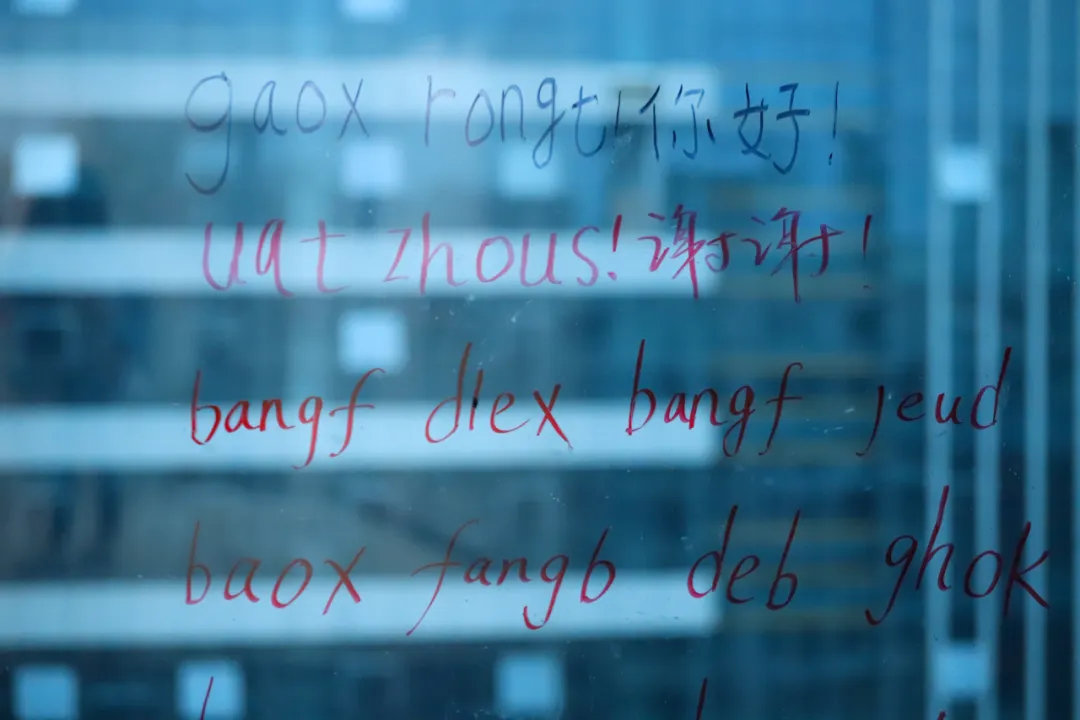 gaox rongt!你好!
uat zhous!谢谢!
bangf diex bangf jeud
baox fangb deb ghok